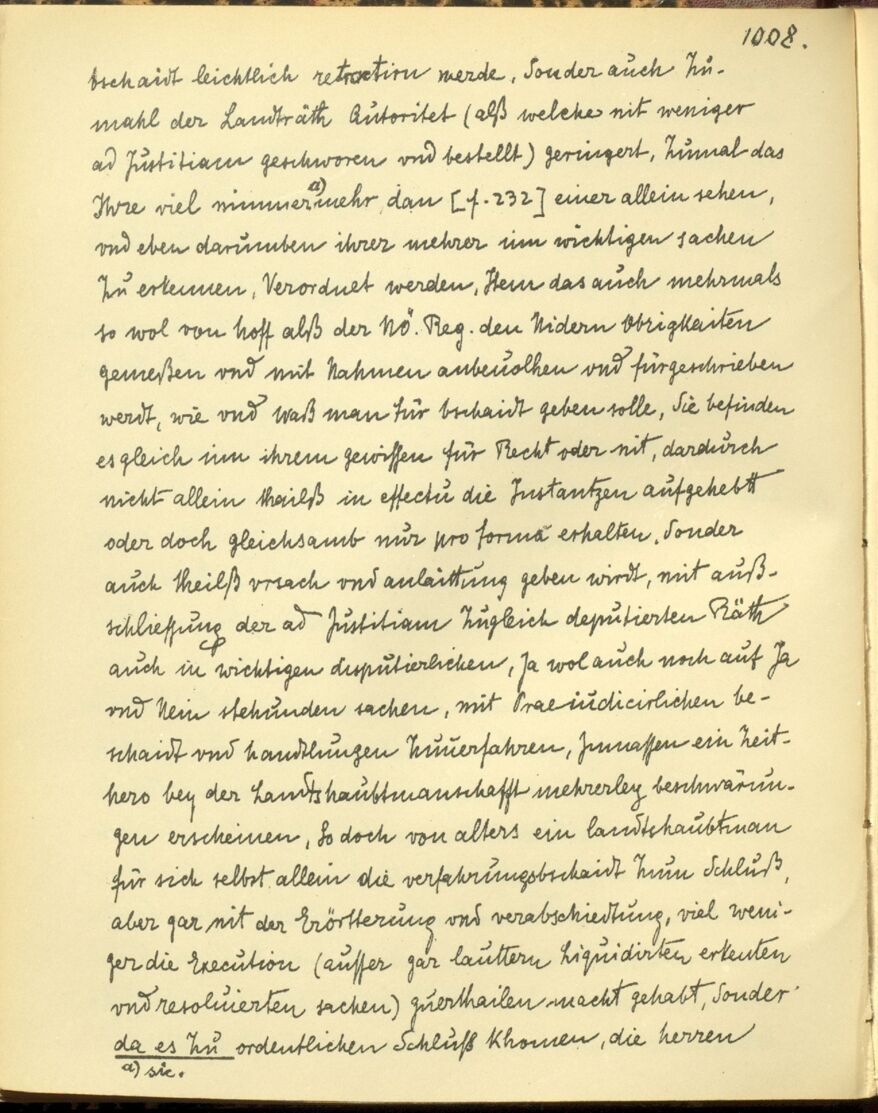 1008.
bschaidt leichtlich retraction werde, Sonder auch Zu-
mahl der Landträth Autoritet (alß welche nit weniger
ad Justitiam geschworen vnd bestellt) geringert, Zumal das
Ihre viel nimmer a) mehr dan [f. 232] einer allein sehen,
vnd eben darumben ihrer mehrer inn wichtigen sachen
Zu erkennen, Verordnet werden, Item das auch mehrmals
so wol von hoff alß der NÖ. Reg. den Nidern Obrigkaiten
gemeßen vnd mit Nahmen anbeuolhen vnd fürgeschrieben
werdt, wie vnd waß man für bschaidt geben solle, Sie befinden
es gleich inn ihrem gewissen für Recht oder nit, dardurch
nicht allein thailß in effectu die Instantzen aufgehebtt
oder doch gleichsamb nur pro forma erhalten, Sonder
auch theilß vrsach vnd anlaittung geben wirdt, mit auß-
schliessung der ad Justitiam Zugleich deputierten Räth
auch in wichtigen disputierlichen, Ja wol auch noch auf Ja
vnd Nein stehunden sachen, mit Praeiudicirlichen be-
schaidt vnd handtlungen Zuuerfahren, Inmassen ein Zeit-
hero bey der Landtshaubtmanschafft mehrerley beschwärun-
gen erscheinen, So doch von alters ein landtshaubtman
für sich selbst allein die verfahrungsbschaidt Zum Schluß,
aber gar nit der Erörtterung vnd verabschiedtung, viel weni-
ger die Execution (ausser gar lauttern Liquidirten erkenten
vnd resoluierten sachen) Zuerthailen macht gehabt, Sonder
da es Zu ordentlichen Schluß Khomen, die herren
a) sic.